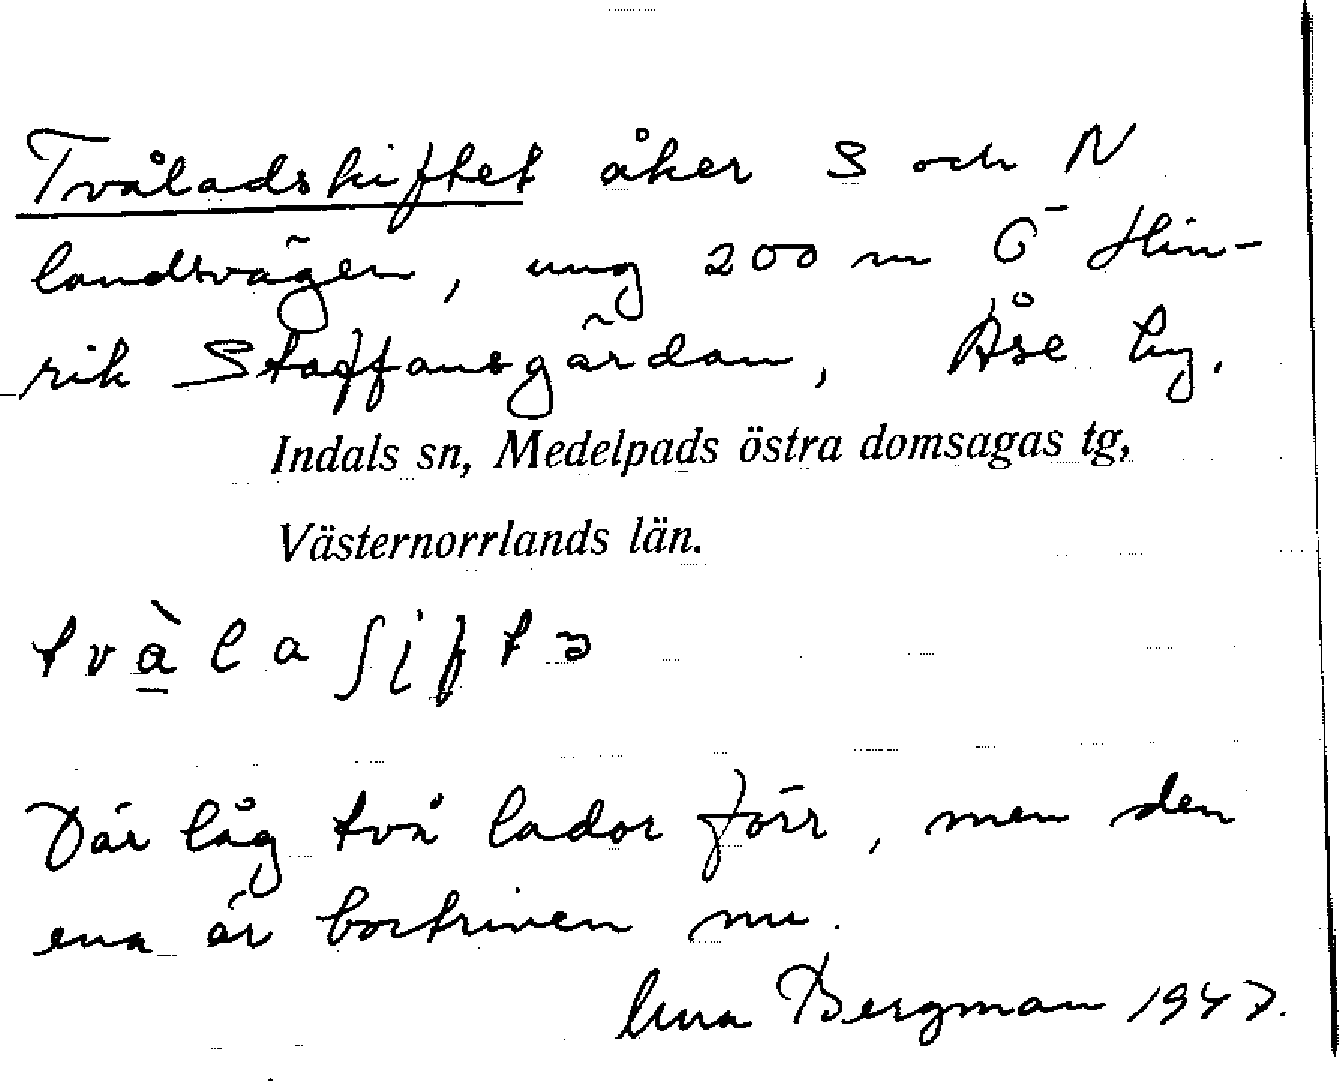 Tvåladskiftet åker S och N
landsvägen, ung 200 m Ö Hin-
rik Staffansgårdan, Åse by.
Indals sn, Medelpads östra domsagas tg,
Västernorrlands län.
två̀laʃiftə
Där låg två lador förr, men den
ena är bortriven nu.
Una Bergman 1947.